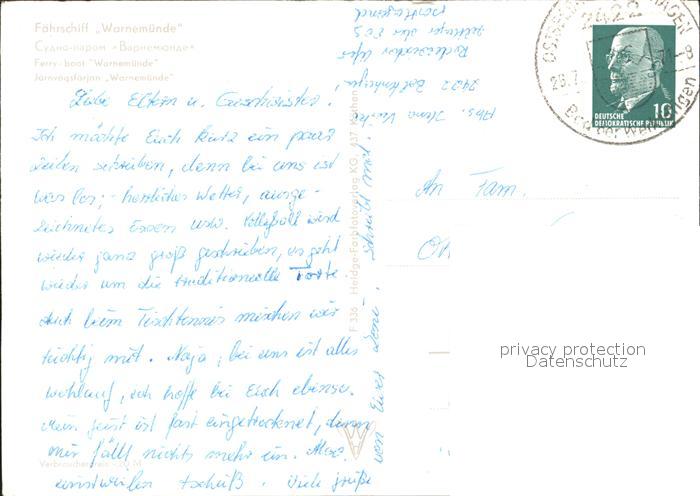 Fährschiff „Warnemünde"
Судно-паром «Варнемюнде»
Ferry-boat "Warnemünde"
Järnvägsfärjan „Warnemünde"
Liebe Eltern u. Geschwister!
Ich möchte Euch kurz ein paar
Zeilen schreiben, denn bei uns ist
was los; herrliches Wetter, ausge-
zeichnetes Essen usw. Volleyball wird
wieder ganz groß geschrieben, es geht
wieder um die traditionelle Torte
Auch beim Tischtennis mischen wir
tüchtig mit. Naja, bei uns ist alles
wohlauf, ich hoffe bei Euch ebenso.
Mein Geist ist fast eingetrocknet, denn
mir fällt nichts mehr ein. Also
einstweilen tschüß. Viele Grüße
von Eurer
schreibt mal.
Abs.
2422 Boltenhagen
F 336 Heldge-Farbfotoverlag KG, 437 Köthen
Verbraucherpreis -,20 M
An Fam.
2422
OSTSEEBAD BOLTENHAGEN
DEUTSCHE
DEMOKRATISCHE REPUBLIK
10
privacy protection
Datenschutz